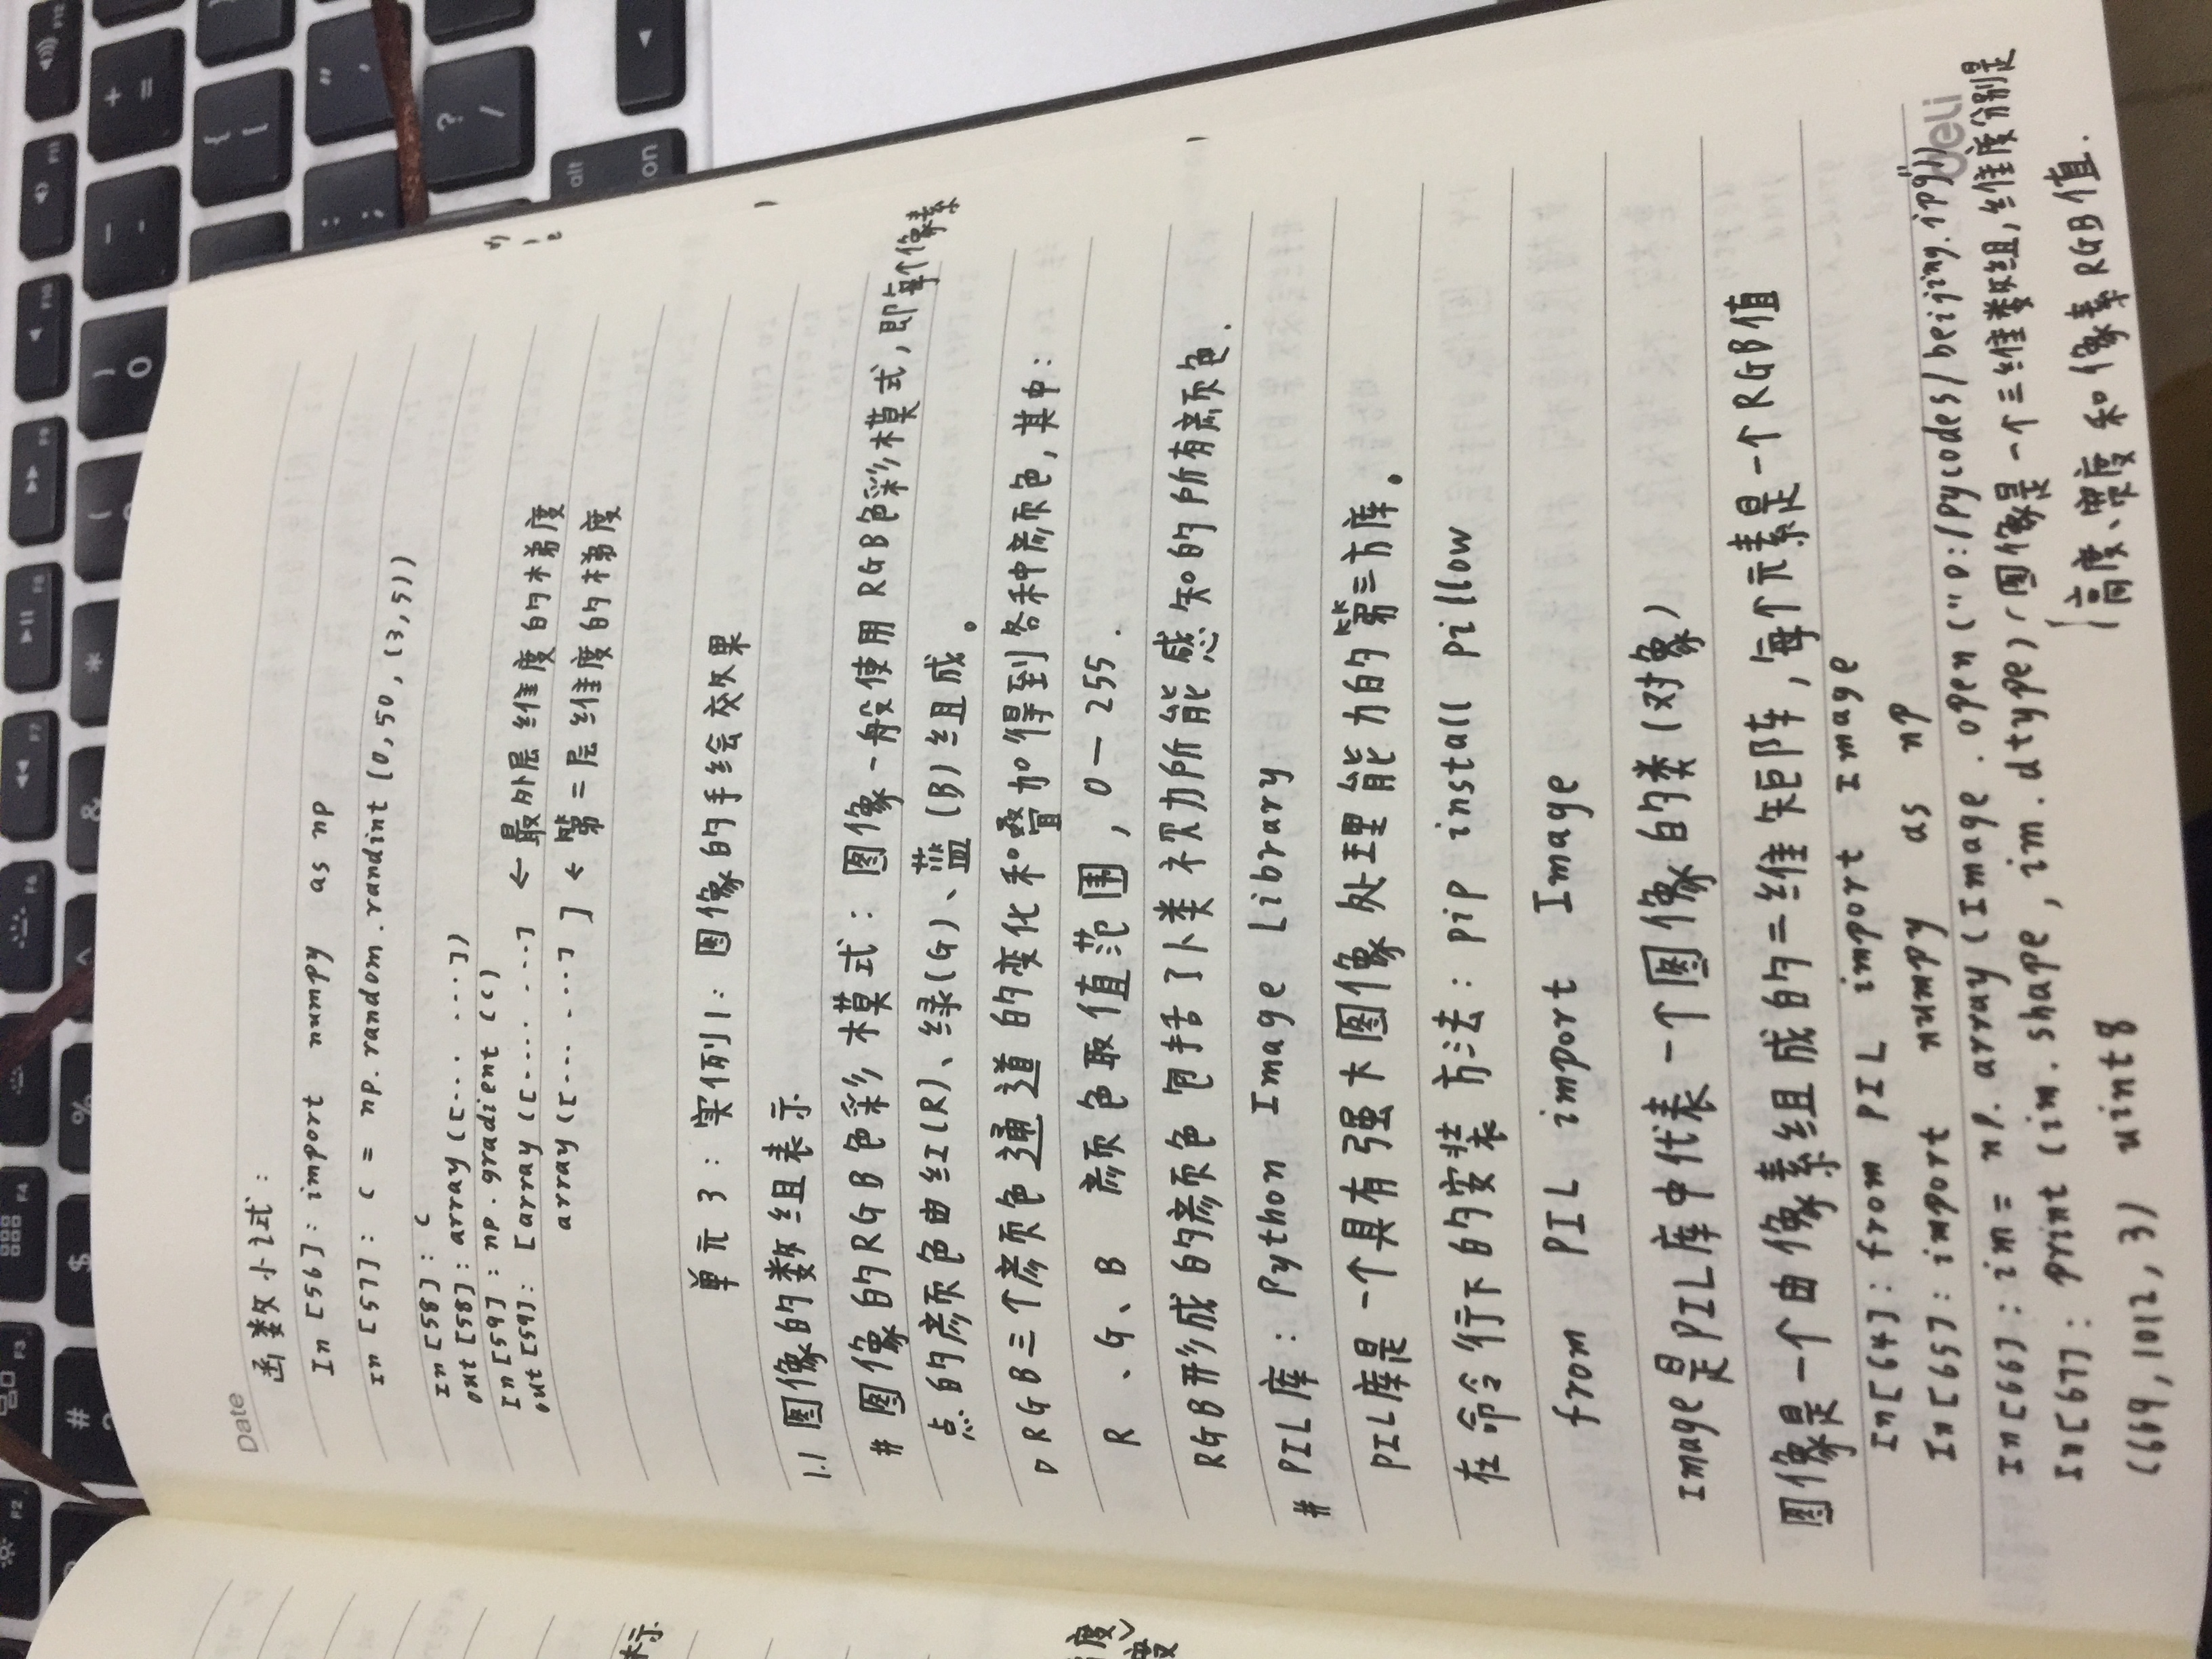 F2 F3 F4 F5 F6 F7 F8 F9 F10 F11 F12
# $ % ^ & * ( ) 0 — - + =
{ [
: ; "
? /
alt
on
Date
函数小试:
In [56]: import numpy as np
In [57]: c = np.random.randint (0,50, (3,5))
In [58]: c
out [58]: array ([··· ···])
In [59]: np.gradient (c)
out [59]: [array ([···· ···] ← 最外层维度的梯度
array ([··· ···] ] ← 第二层维度的梯度
单元3: 实例1: 图像的手绘效果
1.1 图像的数组表示
# 图像的RGB色彩模式: 图像一般使用RGB色彩模式,即每个像素
点的颜色由红(R)、绿(G)、蓝(B)组成。
▷RGB三个颜色通道的变化和叠加得到各种颜色,其中:
R、G、B 颜色取值范围,0—255.
RGB形成的颜色包括了人类视力所能感知的所有颜色.
# PIL库: Python Image Library
PIL库是一个具有强大图像处理能力的第三方库。
在命令行下的安装方法: pip install pillow
from PIL import Image
Image是PIL库中代表一个图像的类(对象)
图像是一个由像素组成的二维矩阵,每个元素是一个RGB值
In[64]: from PIL import Image
In[65]: import numpy as np
In[66]: im= np.array (Image.open ("D:/pycodes/beijing.jpg"))
deli
In[67]: print (im.shape, im.dtype) (图像是一个三维数组,维度分别是
高度、宽度和像素RGB值.
(669,1012,3) uint8
标
度
度